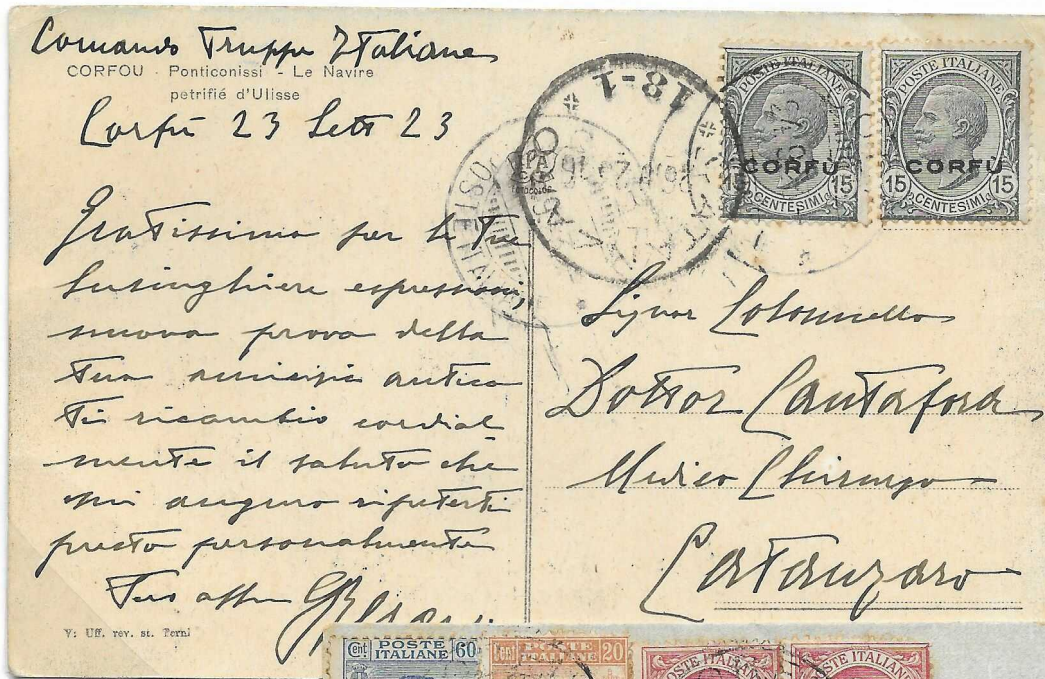 Comando Truppe Italiane
CORFOU - Ponticonissi - Le Navire
petrifié d'Ulisse
Corfù 23 Sett 23
Gratissimo per le Tue
lusinghiere espressioni,
nuova prova della
Tua amicizia antica
Ti ricambio cordial
mente il saluto che
mi auguro ripeterti
presto personalmente
Tuo aff
V: Uff. rev. st. Terni
POSTE ITALIANE
CORFÙ
15 15
CENTESIMI
POSTE ITALIANE
CORFÙ
15 15
CENTESIMI
18-1
Signor Colonnello
Dottor Cantafora
Medico Chirurgo
Catanzaro
Cent POSTE 60
ITALIANE
Cent POSTE 20
ITALIANE
POSTE ITALIANE
POSTE ITALIANE